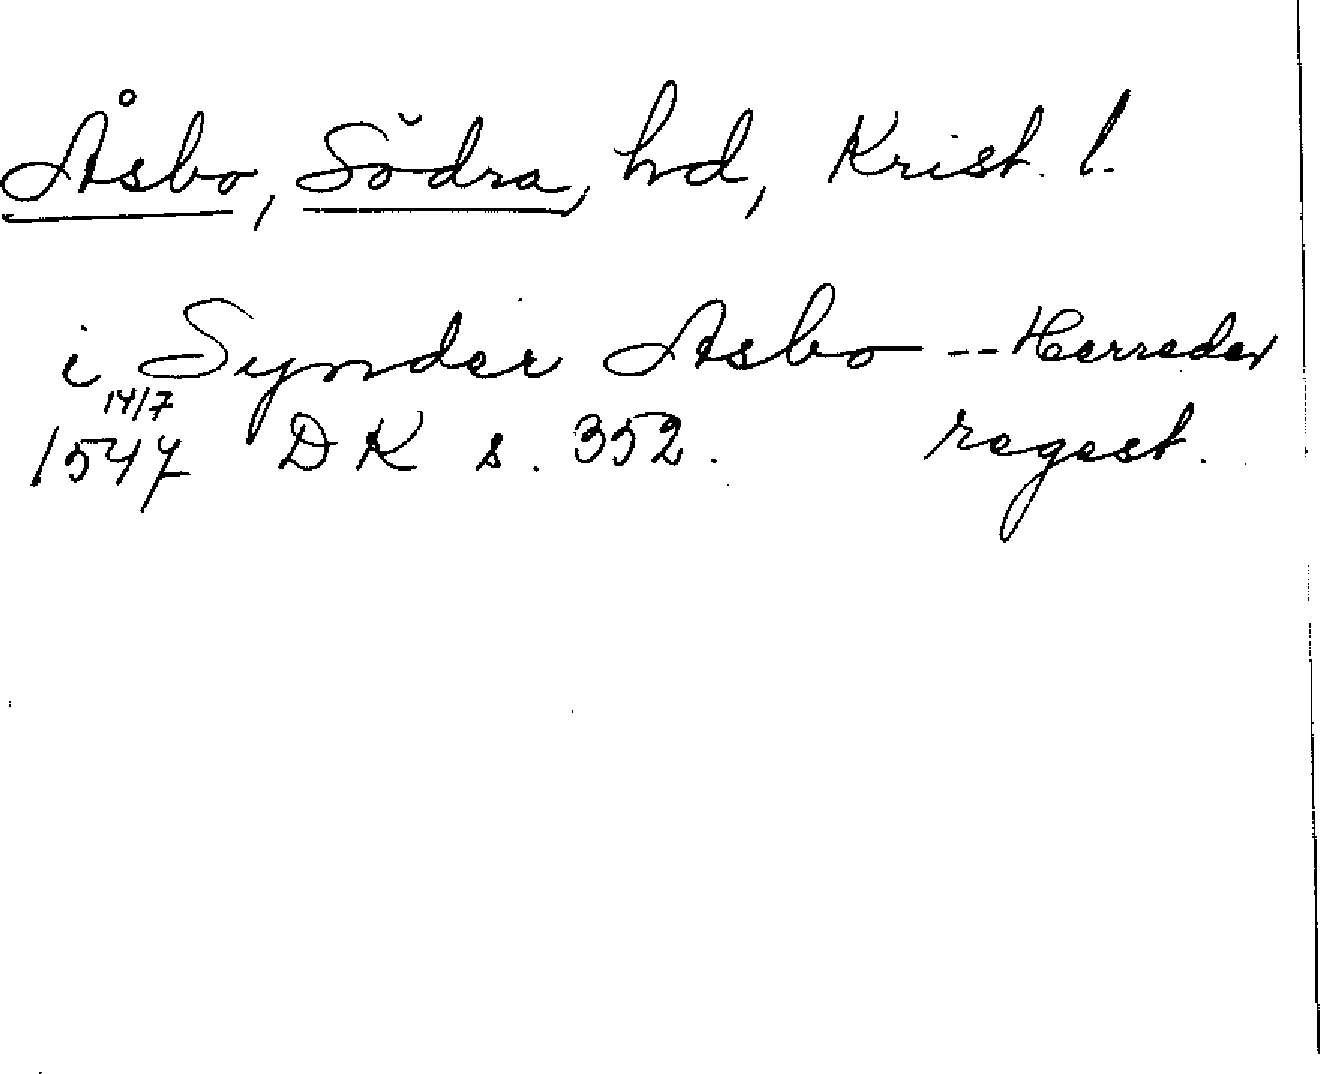 Åsbo, Södra, hd, Krist. l.
i Synder Asbo -- Herreder
14/7
1547 DK s. 352. regest.